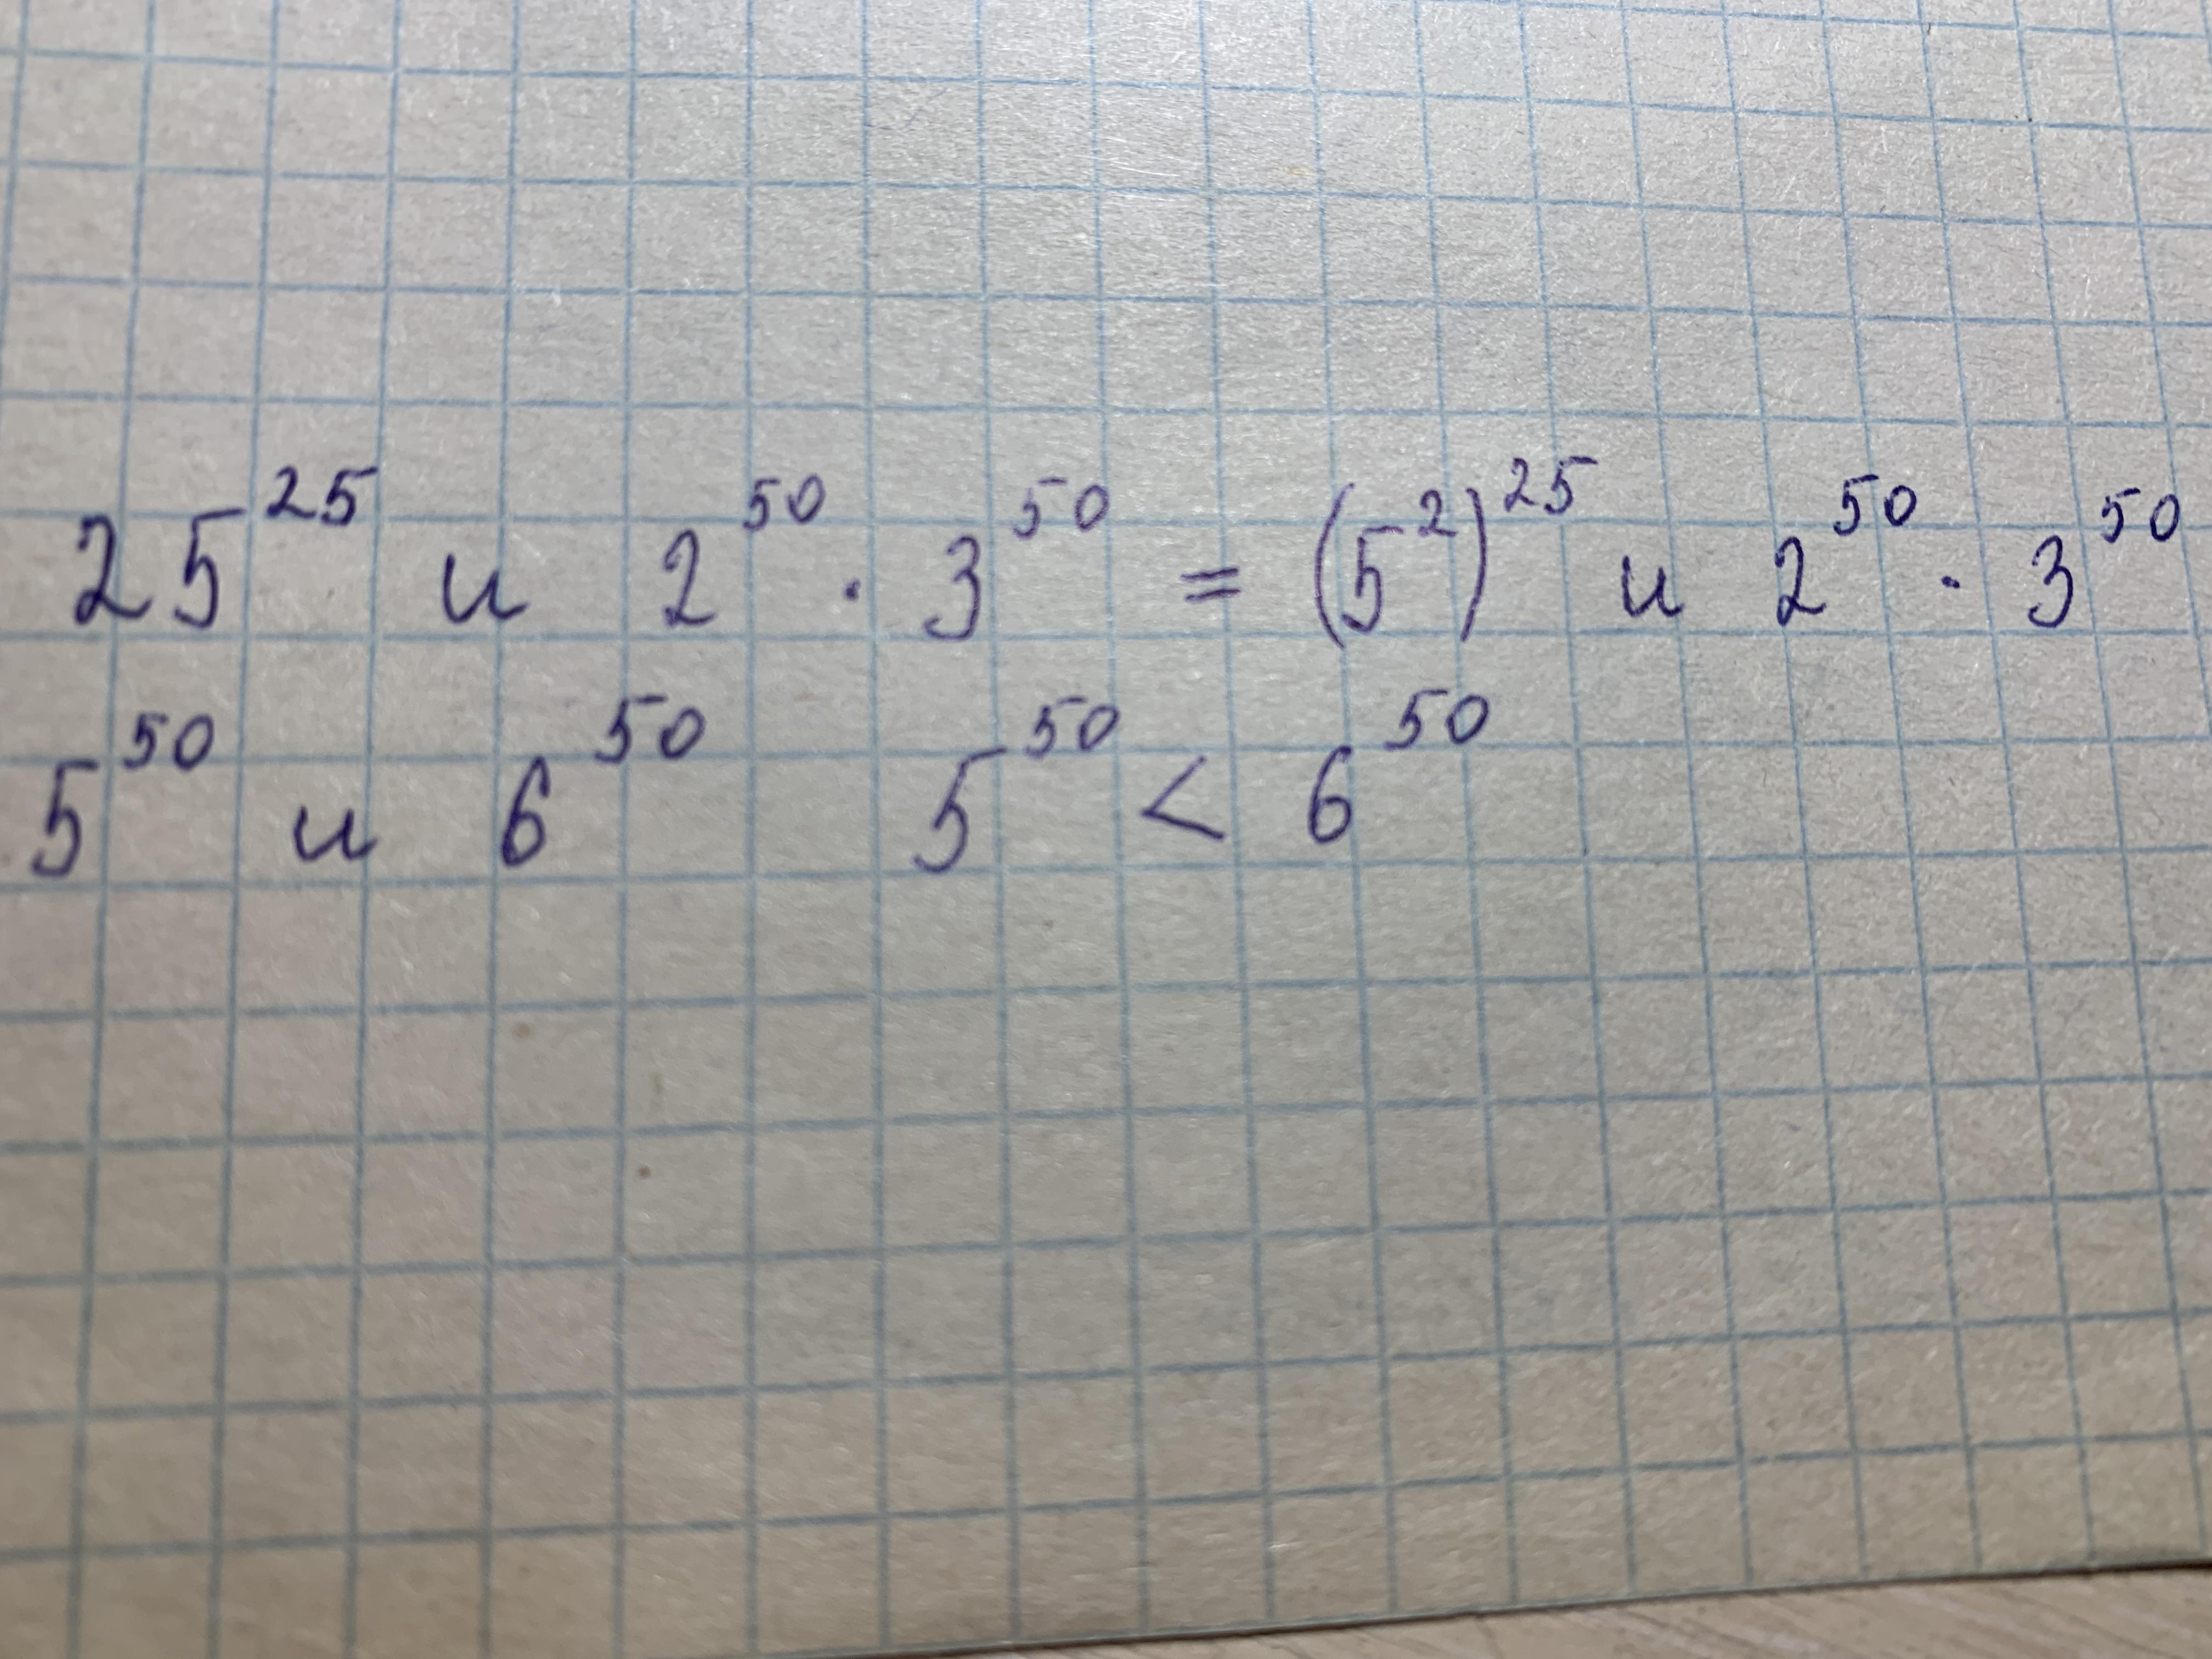 25²⁵ и 2⁵⁰ · 3⁵⁰ = (5²)²⁵ и 2⁵⁰ · 3⁵⁰
5⁵⁰ и 6⁵⁰ 5⁵⁰ < 6⁵⁰